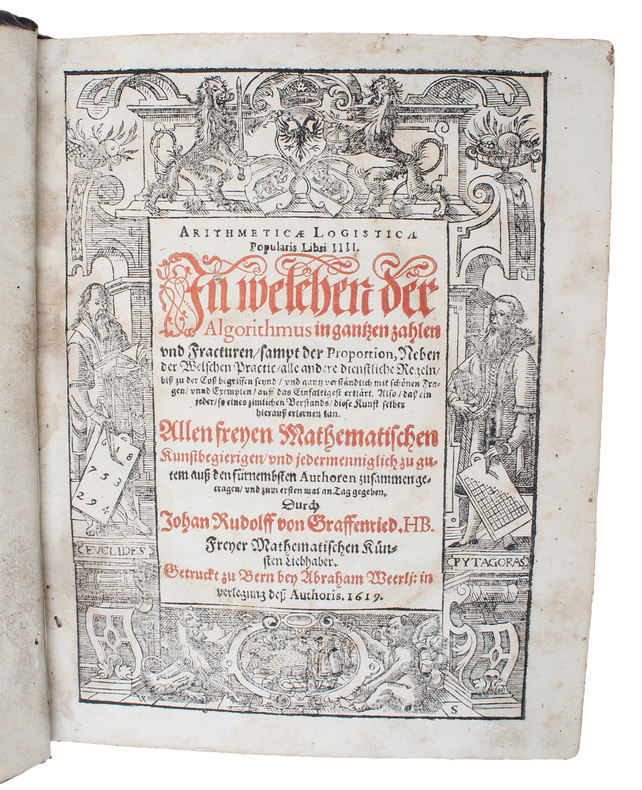 ARITHMETICÆ LOGISTICÆ
Popularis Libri IIII.
In welchen der
Algorithmus in gantzen zahlen
vnd Fracturen/ sampt der Proportion, Neben
der Welschen Practic/ alle andere dienstliche Regeln/
biß zu der Coß begriffen seynd / vnd gantz verständlich mit schönen Fra-
gen/ vnnd Exemplen/ auff das Einfaltigest erklärt. Also/ daß ein
jeder/ so eines zimlichen Verstands/ diese Kunst selber
hierauß erlernen kan.
Allen freyen Mathematischen
Kunstbegierigen/ vnd jedermenniglich zu gu-
tem auß den fürnembsten Authoren zusammen ge-
tragen/ vnd zum ersten mal an Tag gegeben.
Durch
Johan Rudolff von Graffenried. HB.
Freyer Mathematischen Kün-
sten Liebhaber.
Getruckt zu Bern bey Abraham Weerlj: in
verlegung deß Authoris. 1619.
6 8 1
7 5 3
2 9 4
EVCLIDES
PYTAGORAS
S